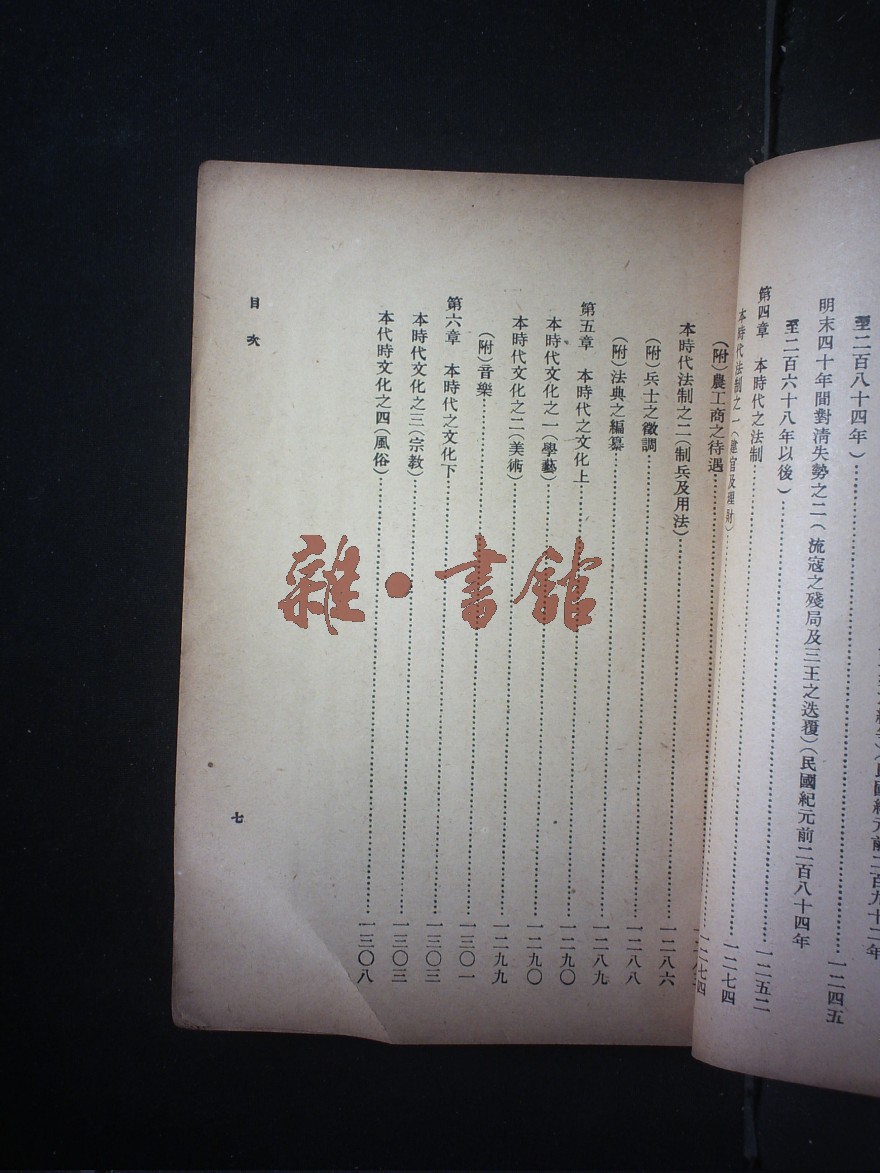 民國紀元前二百九十二年
至二百八十四年)……一二四五
明末四十年間對清失勢之二(流寇之殘局及三王之迭覆)(民國紀元前二百八十四年
至二百六十八年以後)……一二五二
第四章 本時代之法制……一二七四
本時代法制之一(建官及理財)……一二七四
(附)農工商之待遇……
本時代法制之二(制兵及用法)……一二八六
(附)兵士之徵調……一二八八
(附)法典之編纂……一二八九
第五章 本時代之文化上……一二九〇
本時代文化之一(學藝)……一二九〇
本時代文化之二(美術)……一二九九
(附)音樂……一三〇一
第六章 本時代之文化下……一三〇三
本時代文化之三(宗教)……一三〇三
本代時文化之四(風俗)……一三〇八
目次
七
雜·書館